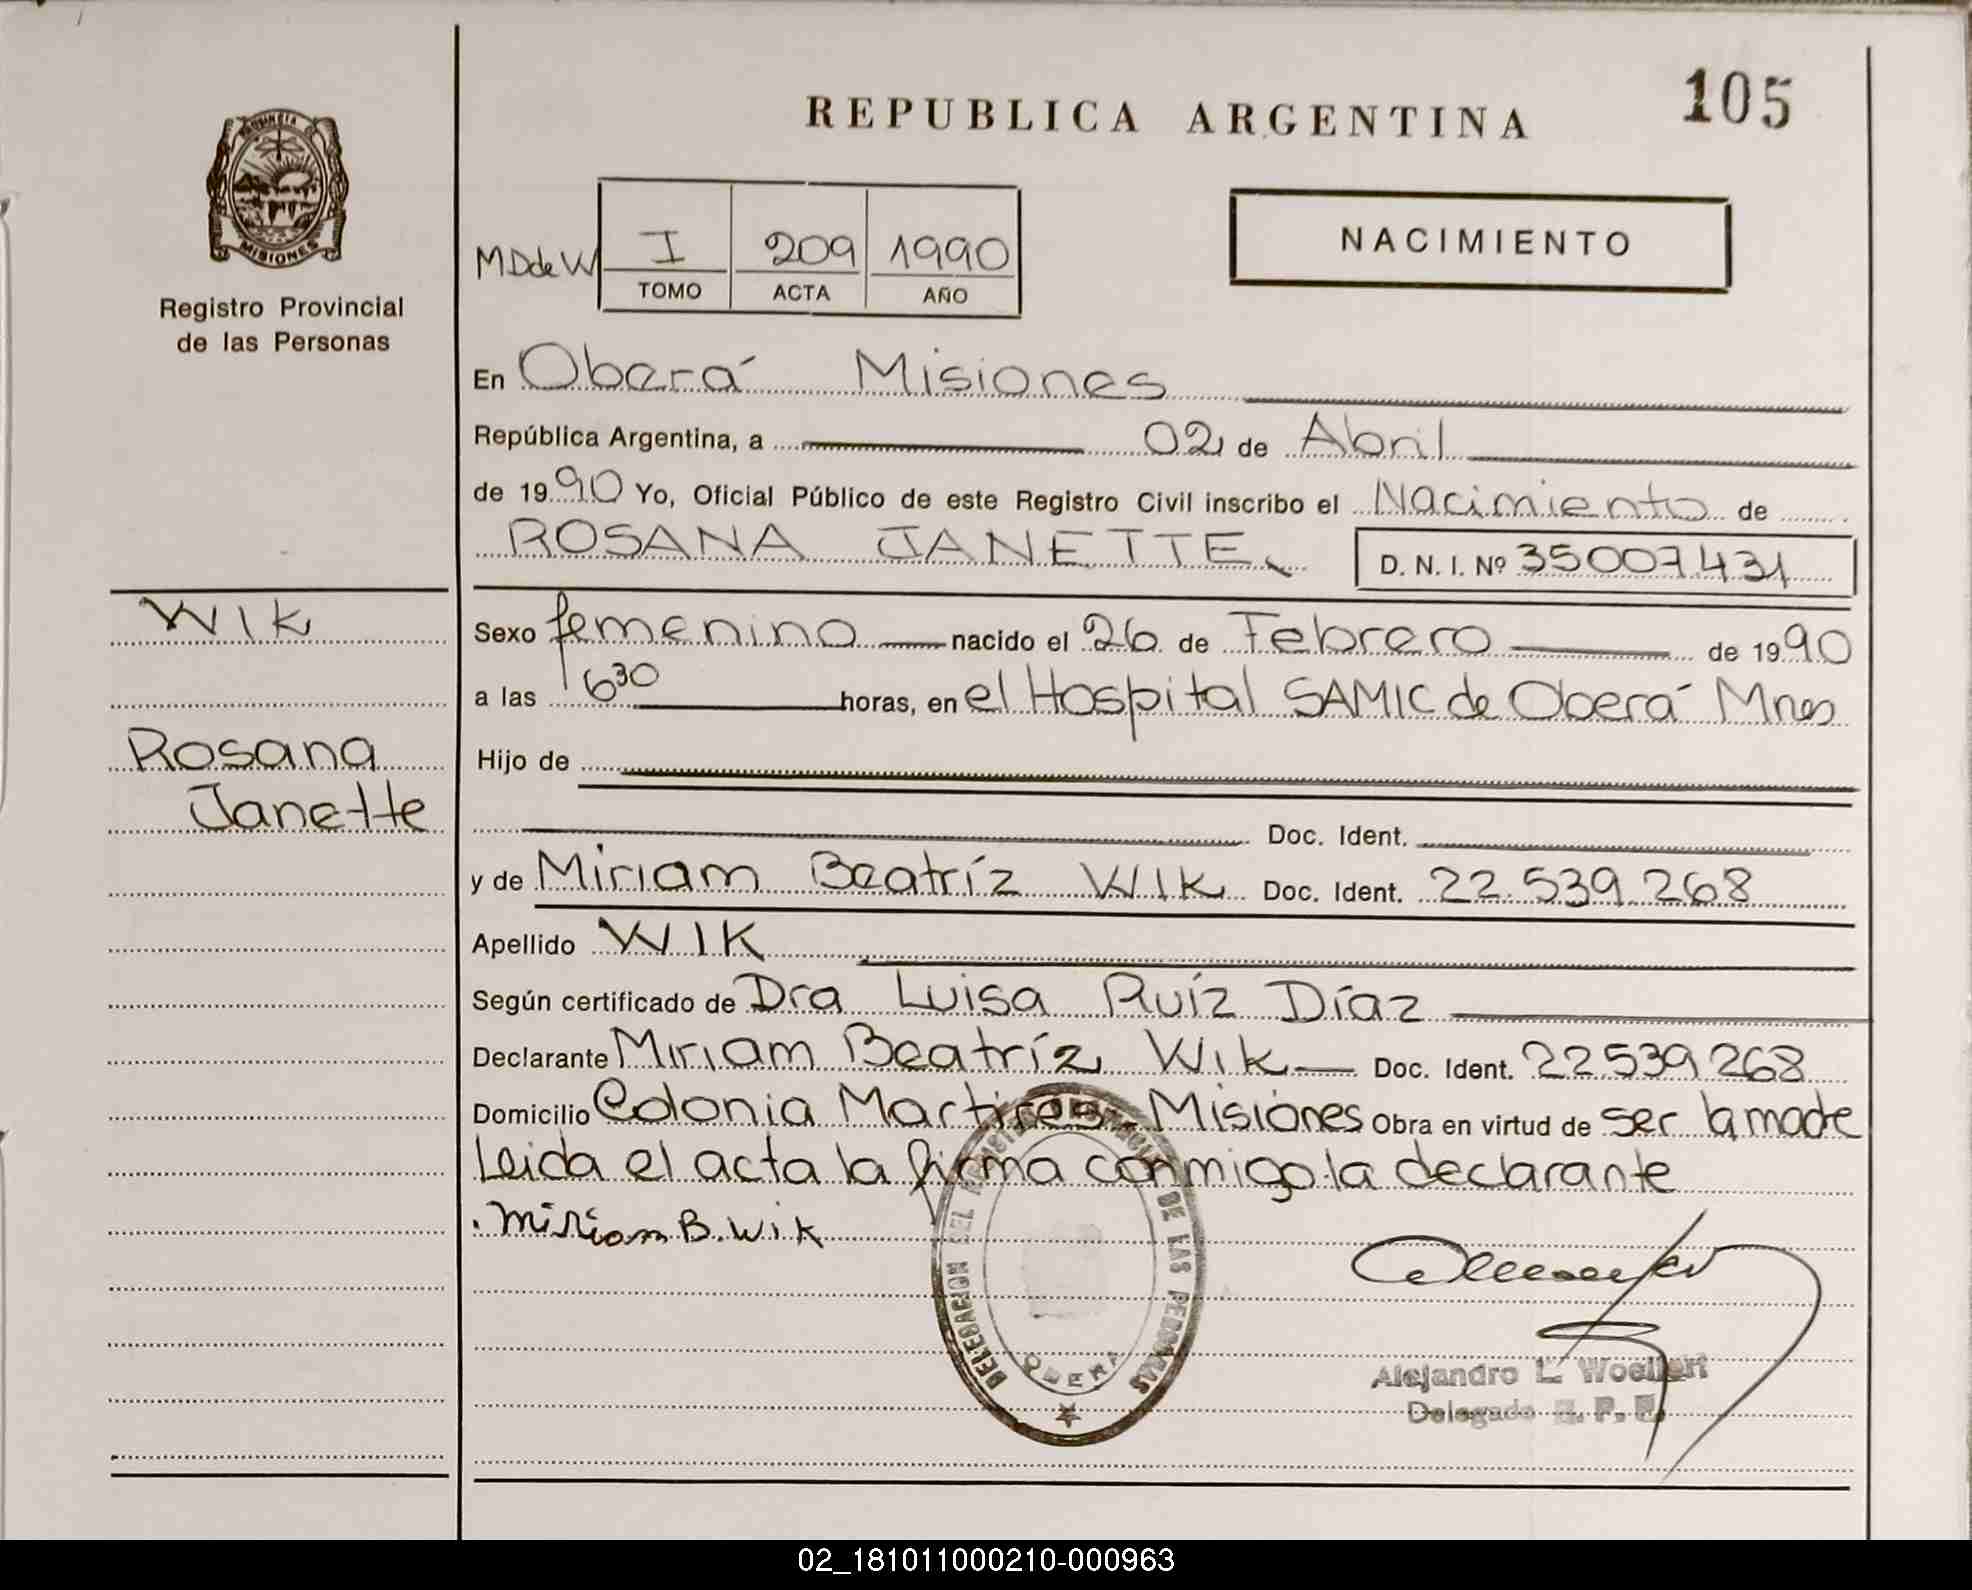 REPUBLICA ARGENTINA
105
PROVINCIA DE
MISIONES
Registro Provincial
de las Personas
MDdeW
I 209 1990
TOMO ACTA AÑO
NACIMIENTO
En Oberá Misiones
República Argentina, a 02 de Abril
de 1990 Yo, Oficial Público de este Registro Civil inscribo el Nacimiento de
ROSANA JANETTE
D. N. I. Nº 35007431
Wik
Rosana
Janette
Sexo femenino nacido el 26 de Febrero de 1990
a las 6 30 horas, en el Hospital SAMIC de Oberá Mnes
Hijo de
Doc. Ident.
y de Miriam Beatríz WIK Doc. Ident. 22.539.268
Apellido WIK
Según certificado de Dra Luisa Ruíz Díaz
Declarante Miriam Beatríz Wik Doc. Ident. 22539268
Domicilio Colonia Martires - Misiones Obra en virtud de ser la madre
Leida el acta la firma conmigo la declarante
Miriam B. Wik
DELEGACION DEL REGISTRO PROVINCIAL DE LAS PERSONAS
OBERA
Alejandro L.
Delegado R. P. P.
02_181011000210-000963